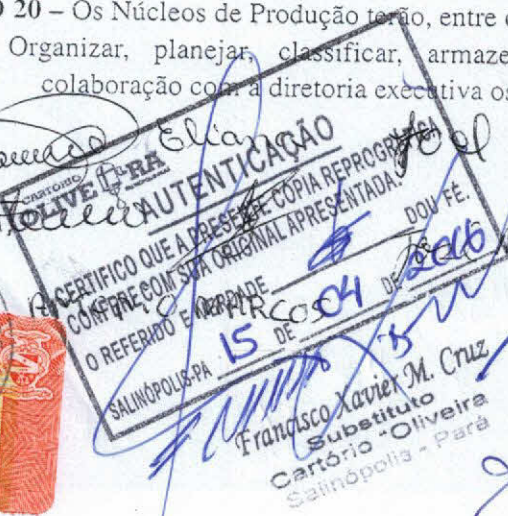 20 – Os Núcleos de Produção terão, entre
Organizar, planejar, classificar,
colaboração com a diretoria executiva os
Eliana
CARTÓRIO
OLIVEIRA
AUTENTICAÇÃO
CERTIFICO QUE A PRESENTE CÓPIA REPROGRÁFICA
CONFERE COM SUA ORIGINAL APRESENTADA.
O REFERIDO É VERDADE DOU FÉ.
MARCOS
SALINÓPOLIS-PA 15 DE 04 DE 2016
Francisco Xavier M. Cruz
Substituto
Cartório "Oliveira
Salinópolis - Pará